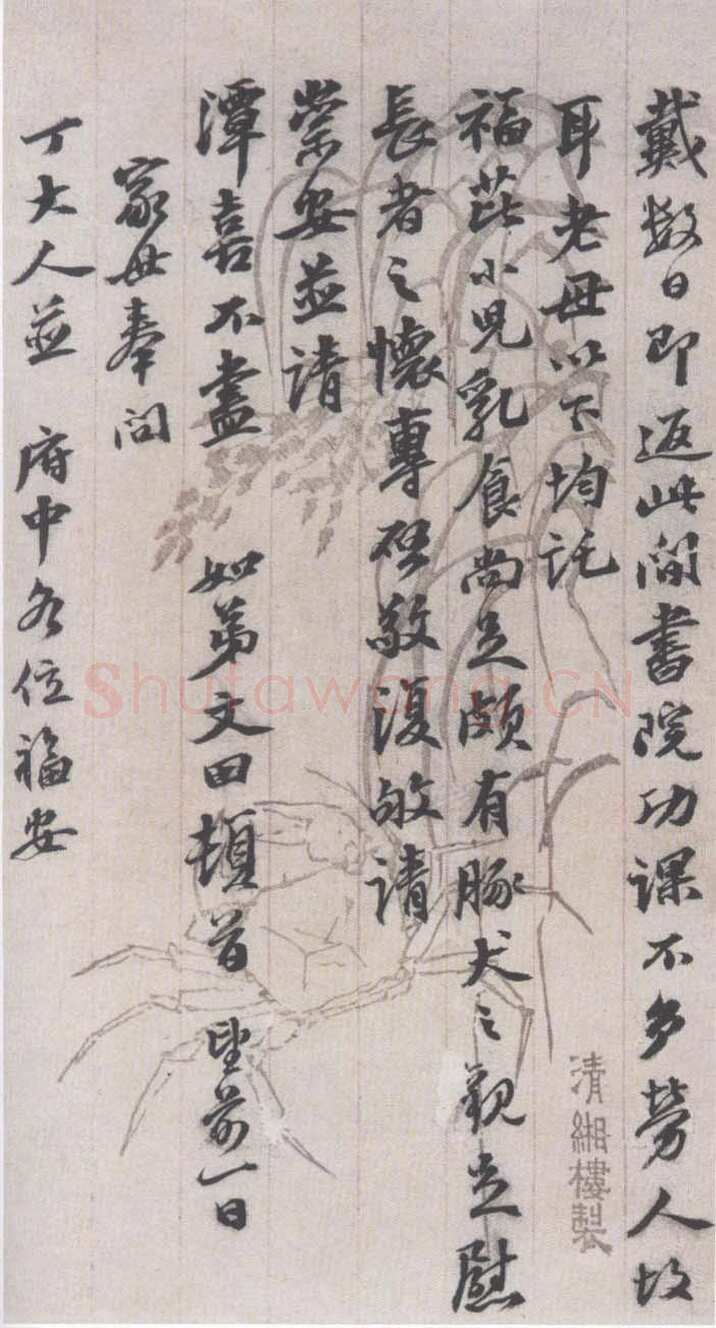 戴數日即返此間書院功課不多勞人故
耳老母以下均託
福芘小兒乳食尚足頗有豚犬之觀足慰
長者之懷專啓敬復敬請
崇安並請
潭喜不盡 如弟文田頓首 望前一日
家母奉問
丁大人並 府中各位福安
清緗樓製
Shufawang.CN